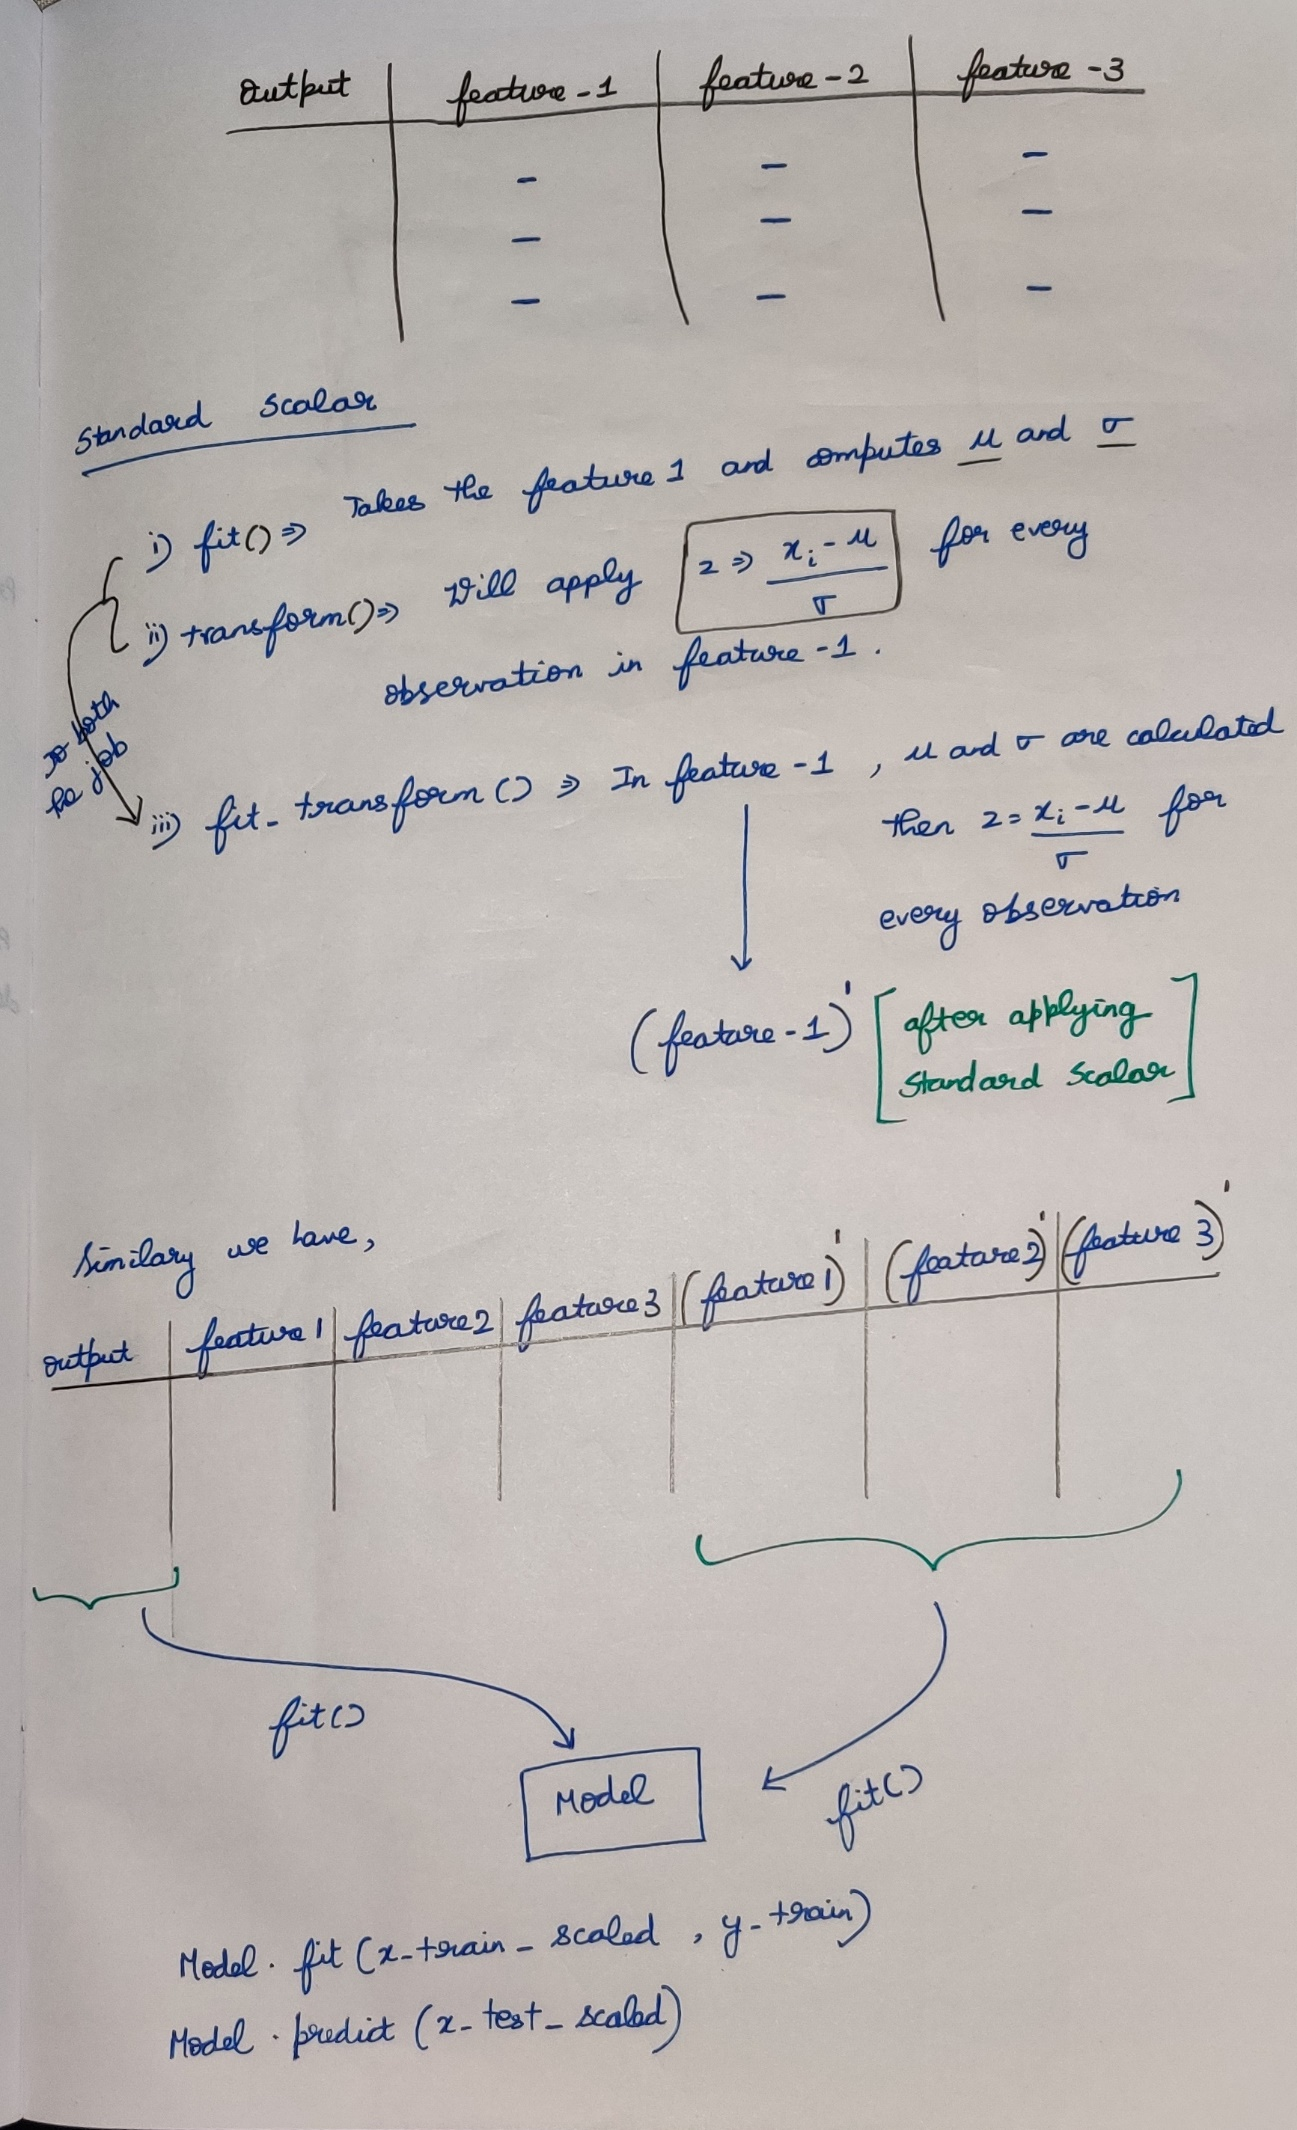 Output feature-1 feature-2 feature-3
- - -
- - -
- - -
Standard Scalar
i) fit() ⇒ Takes the feature 1 and computes μ and σ
ii) transform() ⇒ Will apply z ⇒ (xi - μ)/σ for every
observation in feature-1.
to both
the job
iii) fit_transform() ⇒ In feature-1, μ and σ are calculated
then z = (xi - μ)/σ for
every observation
(feature-1)' [after applying
Standard Scalar]
Similary we have,
output feature1 feature2 feature3 (feature1)' (feature2)' (feature 3)'
fit()
Model
fit()
Model. fit (x_train_scaled, y_train)
Model. predict (x_test_scaled)